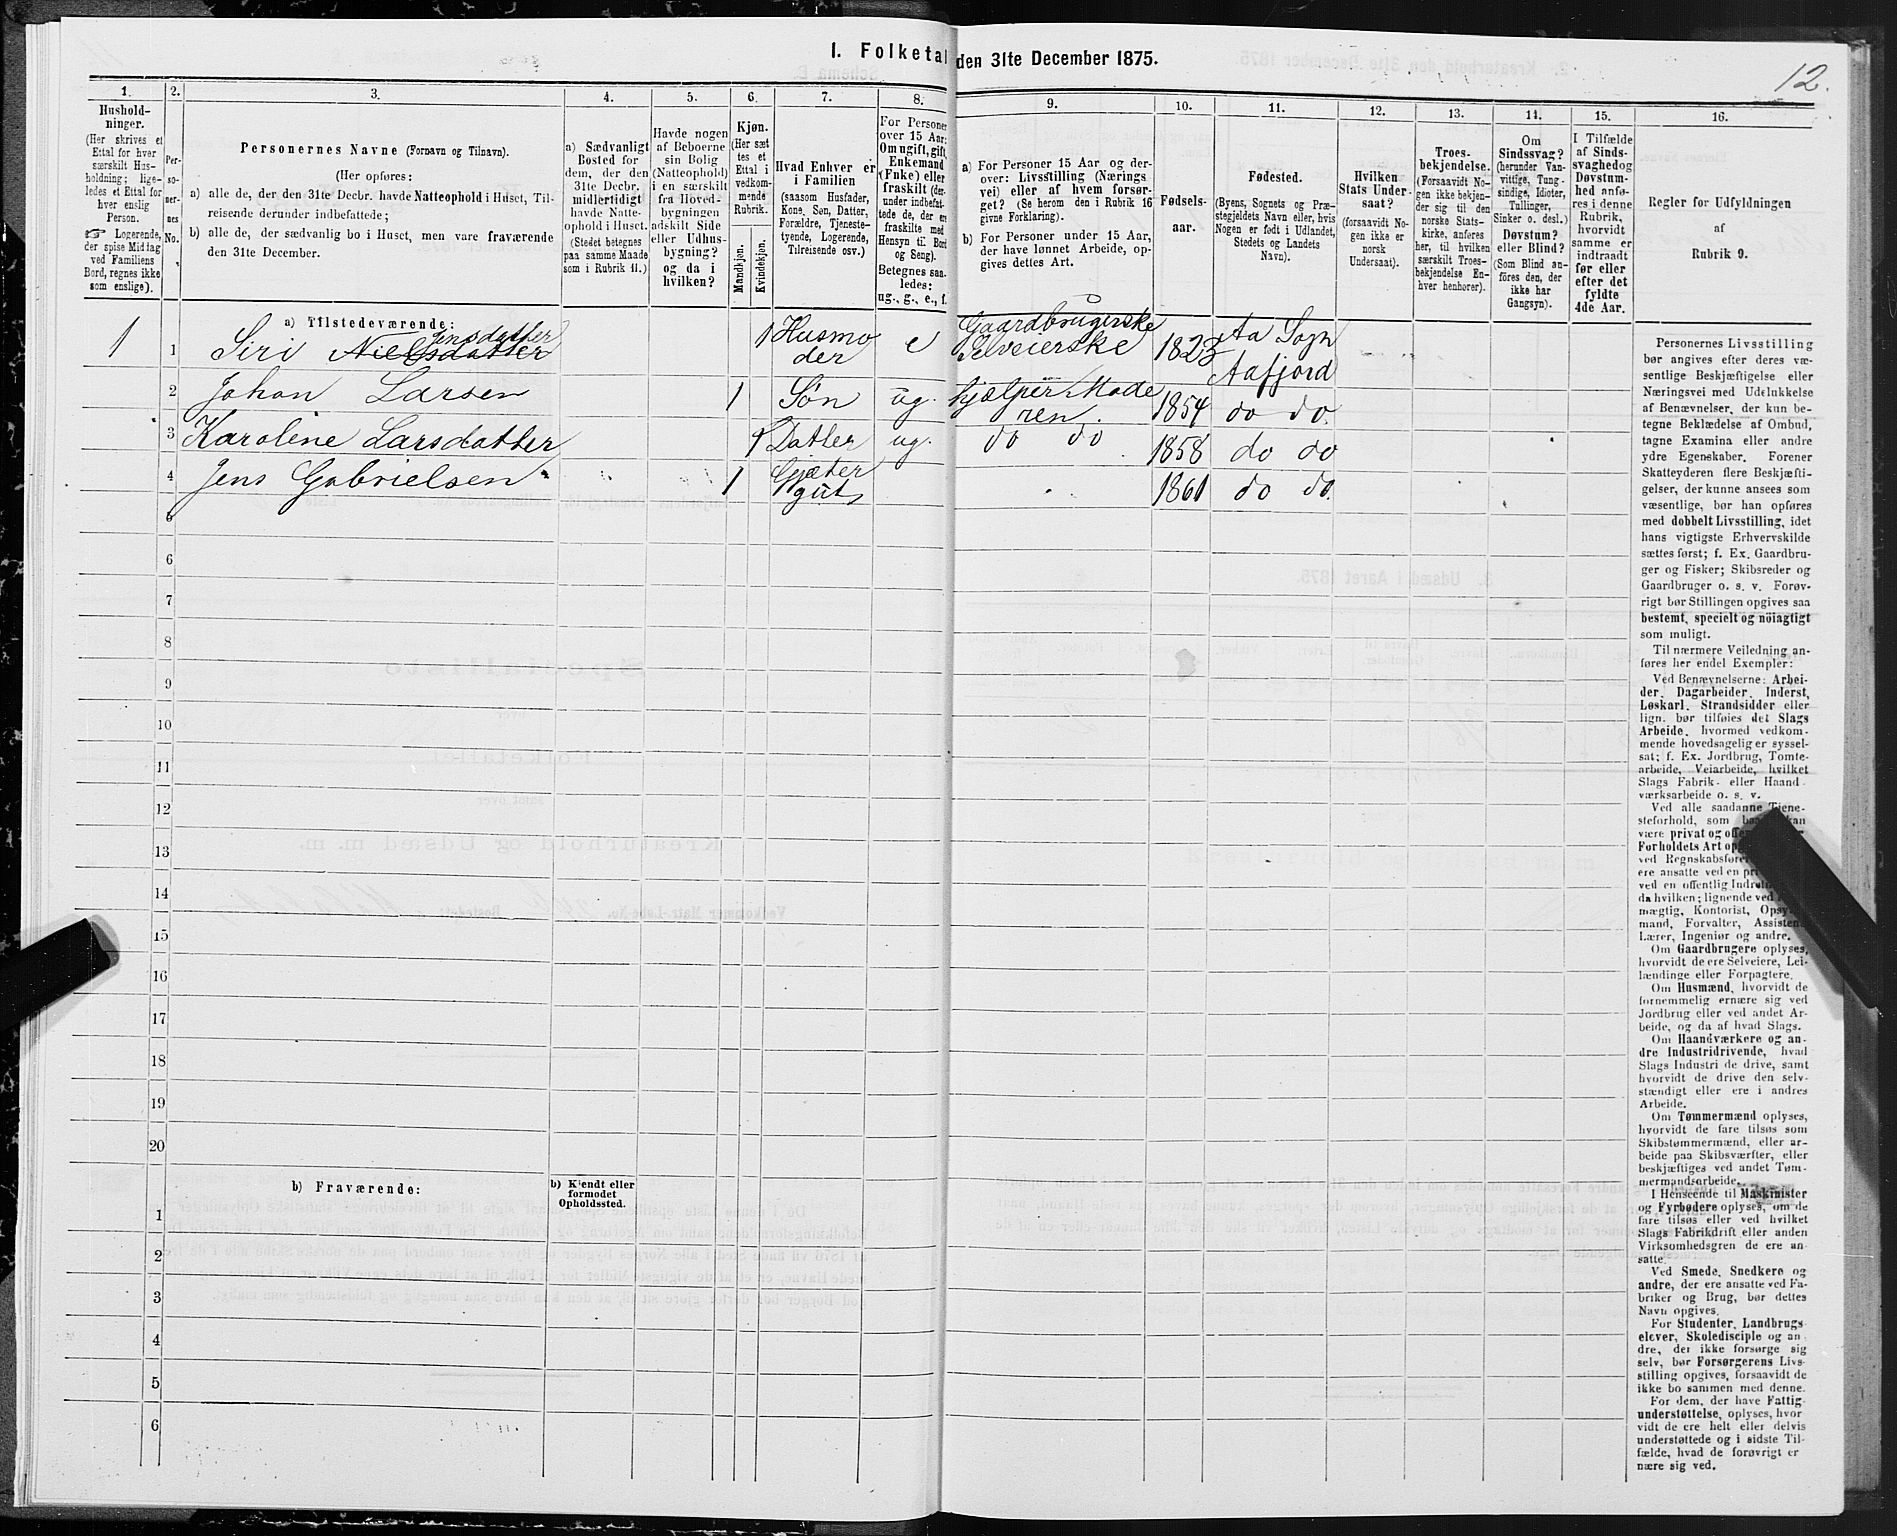 I. Folketal den 31te December 1875.
12.
1.
Hushold-
ninger.
(Her skrives et
Ettal for hver
særskilt Hus-
holdning; lige-
ledes et Ettal for
hver enslig
Person.
☞ Logerende,
der spise Middag
ved Familiens
Bord, regnes ikke
som enslige).
2.
Per-
so-
ner-
nes
No.
3.
Personernes Navne (Fornavn og Tilnavn).
(Her opføres:
a) alle de, der den 31te Decbr. havde Natteophold i Huset, Til-
reisende derunder indbefattede;
b) alle de, der sædvanlig bo i Huset, men vare fraværende
den 31te December.
4.
a) Sædvanligt
Bosted for
dem, der den
31te Decbr.
midlertidigt
havde Natte-
ophold i Huset.
(Stedet betegnes
paa samme Maade
som i Rubrik 11.)
5.
Havde nogen
af Beboerne
sin Bolig
(Natteophold)
i en særskilt
fra Hoved-
bygningen
adskilt Side
eller Udhus-
bygning?
og da i
hvilken?
6.
Kjøn.
(Her sæt
tes et
Ettal i
vedkom-
mende
Rubrik.
Mandkjøn.
Kvindekjøn.
7.
Hvad Enhver er
i Familien
(saasom Husfader,
Kone, Søn, Datter,
Forældre, Tjeneste-
tyende, Logerende,
Tilreisende osv.)
8.
For Personer
over 15 Aar:
Om ugift, gift,
Enkemand
(Enke) eller
fraskilt (der-
under indbefat-
tede de, der ere
fraskilte med
Hensyn til Bord
og Seng).
Betegnes saa-
ledes:
ug., g., e., f.
9.
a) For Personer 15 Aar og der-
over: Livsstilling (Nærings
vei) eller af hvem forsør-
get? (Se herom den i Rubrik 16
givne Forklaring).
b) For Personer under 15 Aar,
der have lønnet Arbeide, op-
gives dettes Art.
10.
Fødsels-
aar.
11.
Fødested.
(Byens, Sognets og Præ-
stegjeldets Navn eller, hvis
Nogen er født i Udlandet,
Stedets og Landets
Navn).
12.
Hvilken
Stats Under-
saat?
(forsaavidt No-
gen ikke er
norsk
Undersaat).
13.
Troes-
bekjendelse.
(Forsaavidt No-
gen ikke bekjen-
der sig til den
norske Stats-
kirke, anføres
her, til hvilken
særskilt Troes-
bekjendelse En-
hver henhører).
14.
Om
Sindssvag?
(herunder Van-
vittige, Tung-
sindige, Idioter,
Tullinger,
Sinker o. desl.)
Døvstum?
eller Blind?
(Som Blind an-
føres den, der
ikke har
Gangsyn).
15.
I Tilfælde
af Sinds-
svaghed og
Døvstum-
hed anfø-
res i denne
Rubrik,
hvorvidt
samme er
indtraadt
før eller
efter det
fyldte
4de Aar.
16.
Regler for Udfyldningen
af
Rubrik 9.
a) Tilstedeværende:
Jensdatter
1 1 Siri Nielsdatter 1 Husmo der e Gaardbrugerske Selveierske 1823 Aa Sogn Aafjord
2 Johan Larsen 1 Søn ug. hjælper Mode ren. 1854 do do.
3 Karoline Larsdatter 1 Datter ug. do do 1858 do do
4 Jens Gabrielsen 1 Gjæter gut 1861 do do.
5
6
7
8
9
10
11
12
13
14
15
16
17
18
19
20
b) Fraværende:
b) Kjendt eller
formodet
Opholdssted.
1
2
3
4
5
6
Personernes Livsstilling
bør angives efter deres væ-
sentlige Beskjæftigelse eller
Næringsvei med Udelukkelse
af Benævnelser, der kun be-
tegne Beklædelse af Ombud,
tagne Examina eller andre
ydre Egenskaber. Forener
Skatteyderen flere Beskjæfti-
gelser, der kunne ansees som
væsentlige, bør han opføres
med dobbelt Livsstilling, idet
hans vigtigste Erhvervskilde
sættes først; f. Ex. Gaardbru-
ger og Fisker; Skibsreder og
Gaardbruger o. s. v. Forøv-
rigt bør Stillingen opgives saa
bestemt, specielt og nöiagtigt
som muligt.
Til nærmere Veiledning an-
føres her endel Exempler:
Ved Benævnelserne: Arbei-
der, Dagarbeider, Inderst,
Løskarl, Strandsidder eller
lign. bør tilføies det Slags
Arbeide, hvormed vedkom-
mende hovedsagelig er syssel-
sat; f. Ex. Jordbrug, Tomte-
arbeide, Veiarbeide, hvilket
Slags Fabrik- eller Haand-
værksarbeide o. s. v.
Ved alle saadanne Tjene-
steforhold, som kan
være privat og
Forholdets Art
ved Regnskabsfører
ere ansatte ved en
ved en offentlig
da hvilken; lignende ved
mægtig, Kontorist,
mand, Forvalter,
Lærer, Ingeniør og andre.
Om Gaardbrugere oplyses,
hvorvidt de ere Selveiere, Lei-
lændinge eller Forpagtere.
Om Husmænd, hvorvidt de
fornemmelig ernære sig ved
Jordbrug eller ved andet Ar-
beide, og da af hvad Slags.
Om Haandværkere og an-
dre Industridrivende, hvad
Slags Industri de drive, samt
hvorvidt de drive den selv-
stændigt eller ere i andres
Arbeide.
Om Tømmermænd oplyses,
hvorvidt de fare tilsøs som
Skibstømmermænd, eller ar-
beide paa Skibsværfter, eller
beskjæftiges ved andet Tøm-
mermandsarbeide.
I Henseende til Maskinister
og Fyrbødere oplyses, om de
fare tilsøs eller ved hvilket
Slags Fabrikdrift eller anden
Virksomhedsgren de ere an-
satte.
Ved Smede, Snedkere og
andre, der ere ansatte ved Fa-
briker og Brug, bør dettes
Navn opgives.
For Studenter, Landbrugs
elever, Skoledisciple og an
dre, der ikke forsørge sig
selv, bør Forsørgerens Livs-
stilling opgives, forsaavidt de
ikke bo sammen med denne.
For dem, der have Fattig-
understøttelse, oplyses, hvor
vidt de ere helt eller delvis
understøttede og i sidste Til-
fælde, hvad de forøvrigt er
nære sig ved.